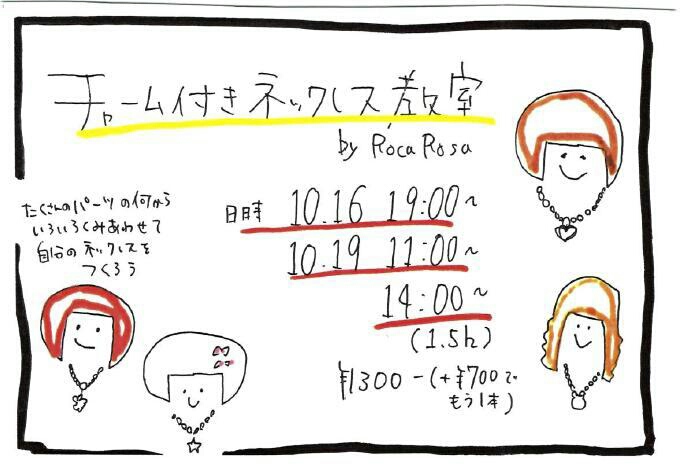 チャーム付きネックレス教室
by Roca Rosa
たくさんのパーツの何から
いろいろくみあわせて
自分のネックレスを
つくろう
日時 10.16 19:00~
10.19 11:00~
14:00~
(1.5h)
¥1300-(+¥700で
もう1本)